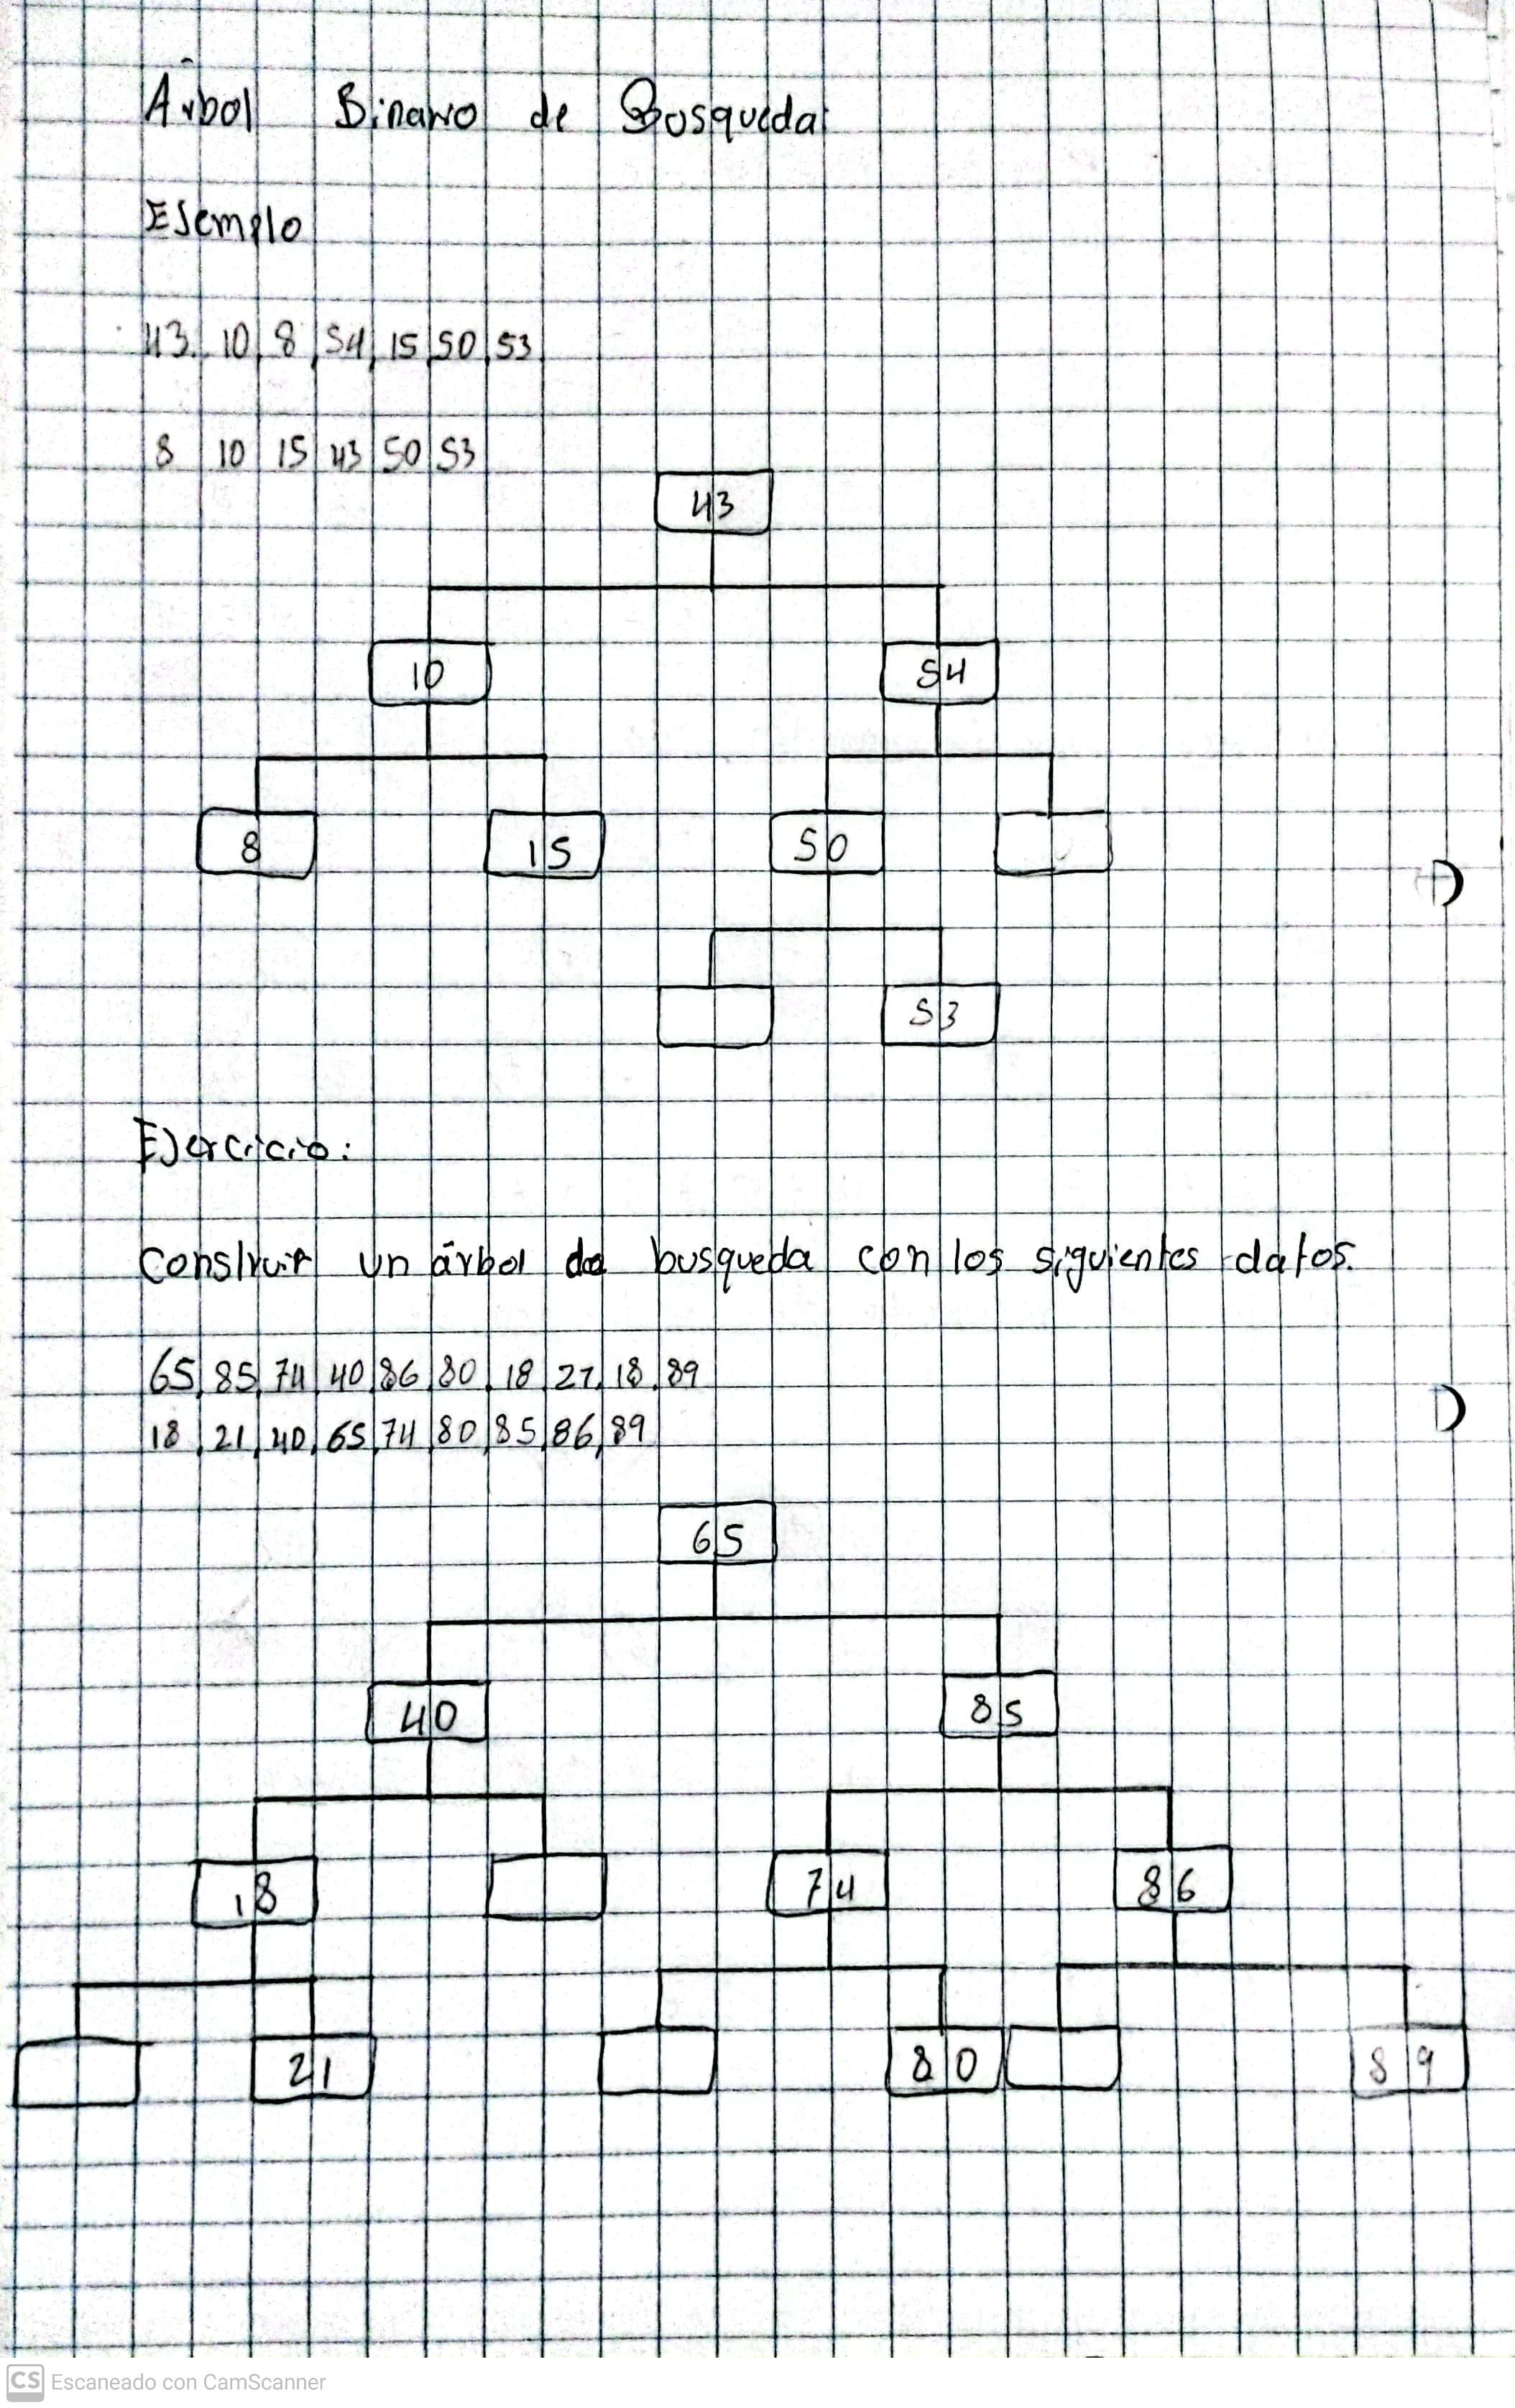 Árbol Binario de Busqueda
Ejemplo
43, 10, 8, 54, 15, 50, 53
8 10 15 43 50 53
43
10 54
8 15 50
53
Ejercicio:
Construir un árbol de busqueda con los siguientes datos.
65, 85, 74, 40, 86, 80, 18, 21, 18, 89
18, 21, 40, 65, 74, 80, 85, 86, 89
65
40 85
18 74 86
21 80 89
CS Escaneado con CamScanner